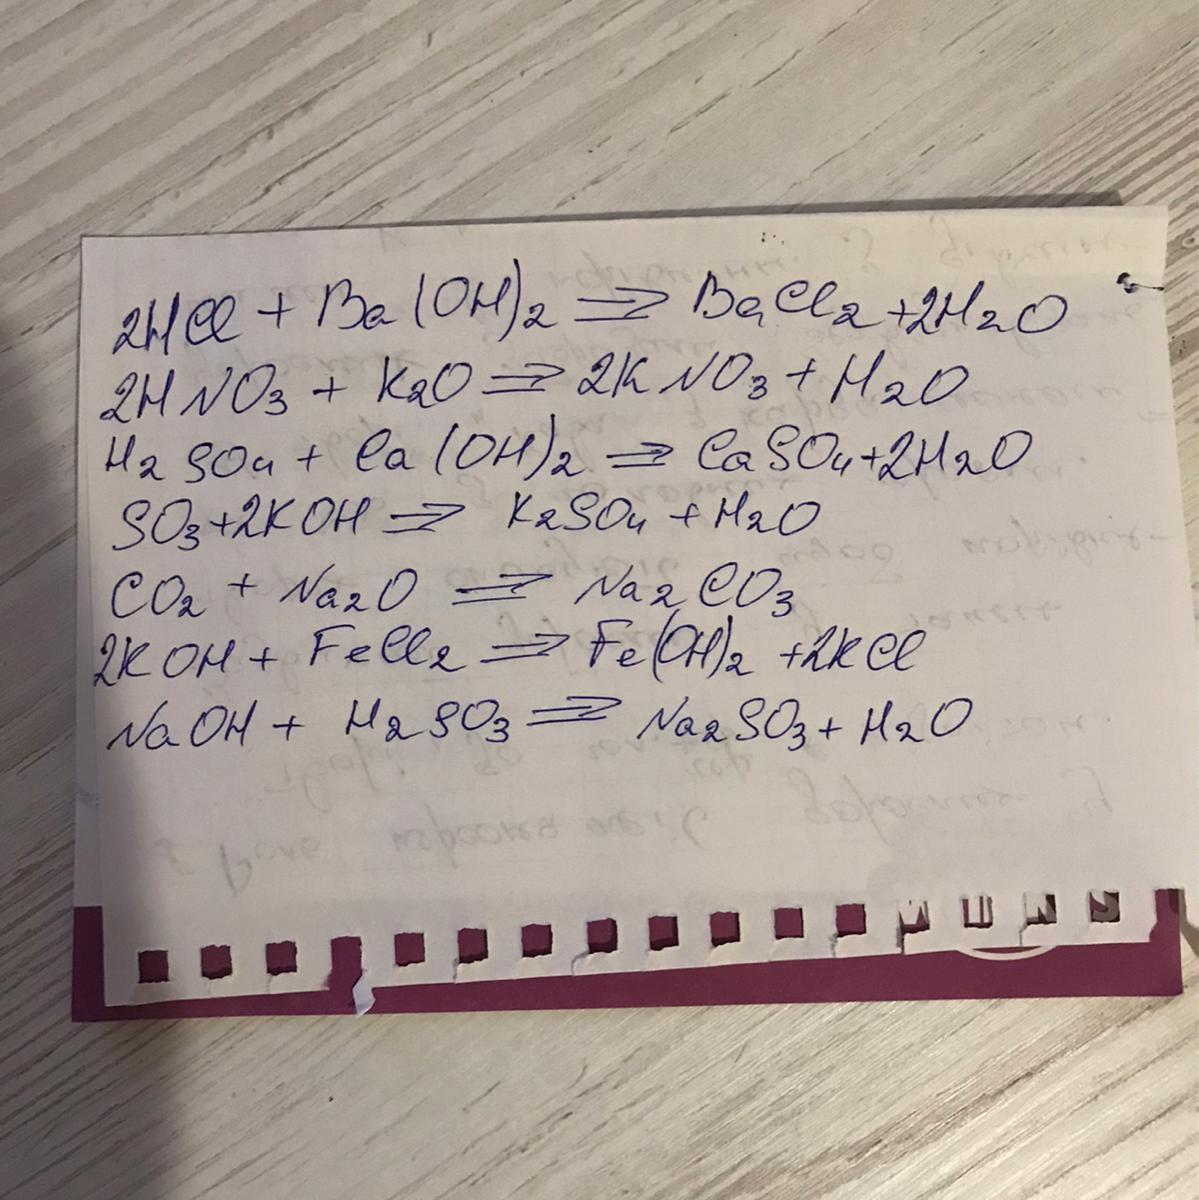 2HCl + Ba(OH)2 ⇒ BaCl2 + 2H2O
2HNO3 + K2O ⇒ 2KNO3 + H2O
H2SO4 + Ca(OH)2 ⇒ CaSO4 + 2H2O
SO3 + 2KOH ⇒ K2SO4 + H2O
CO2 + Na2O ⇒ Na2CO3
2KOH + FeCl2 ⇒ Fe(OH)2 + 2KCl
NaOH + H2SO3 ⇒ Na2SO3 + H2O